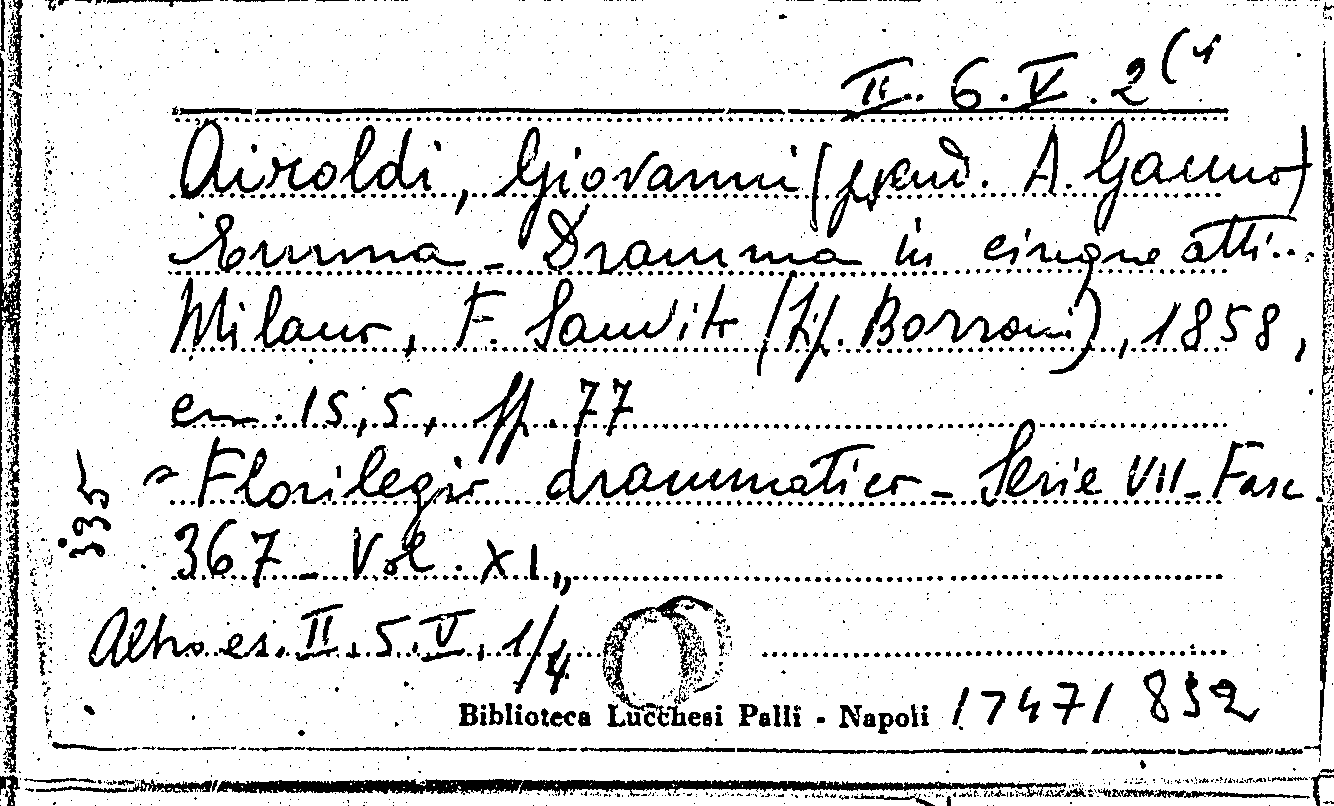 II. 6. V. 2(4
Airoldi, Giovanni (pseud. A. Gauno)
Emma - Dramma in cinque atti...
Milano, F. Sanvito (tip. Borroni), 1858,
cm. 15,5, pp. 77
"Florilegio drammatico - Serie VII - Fasc.
367 - Vol. XI„
395
Altro es. II. 5. V. 1/4
Biblioteca Lucchesi Palli - Napoli 17471 892